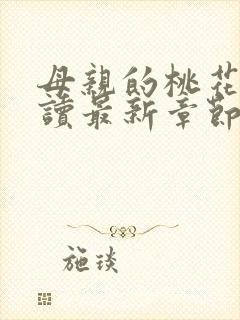 母親的桃花
讀最新章節
施琰